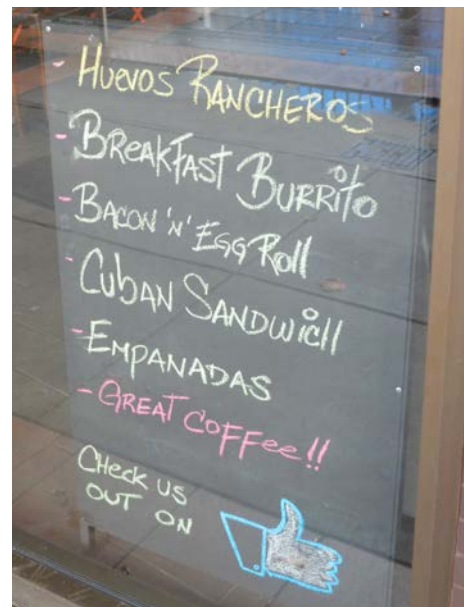 - Huevos Rancheros
- Breakfast Burrito
- Bacon 'n' Egg Roll
- Cuban Sandwich
- Empanadas
- Great Coffee!!
Check us
out on